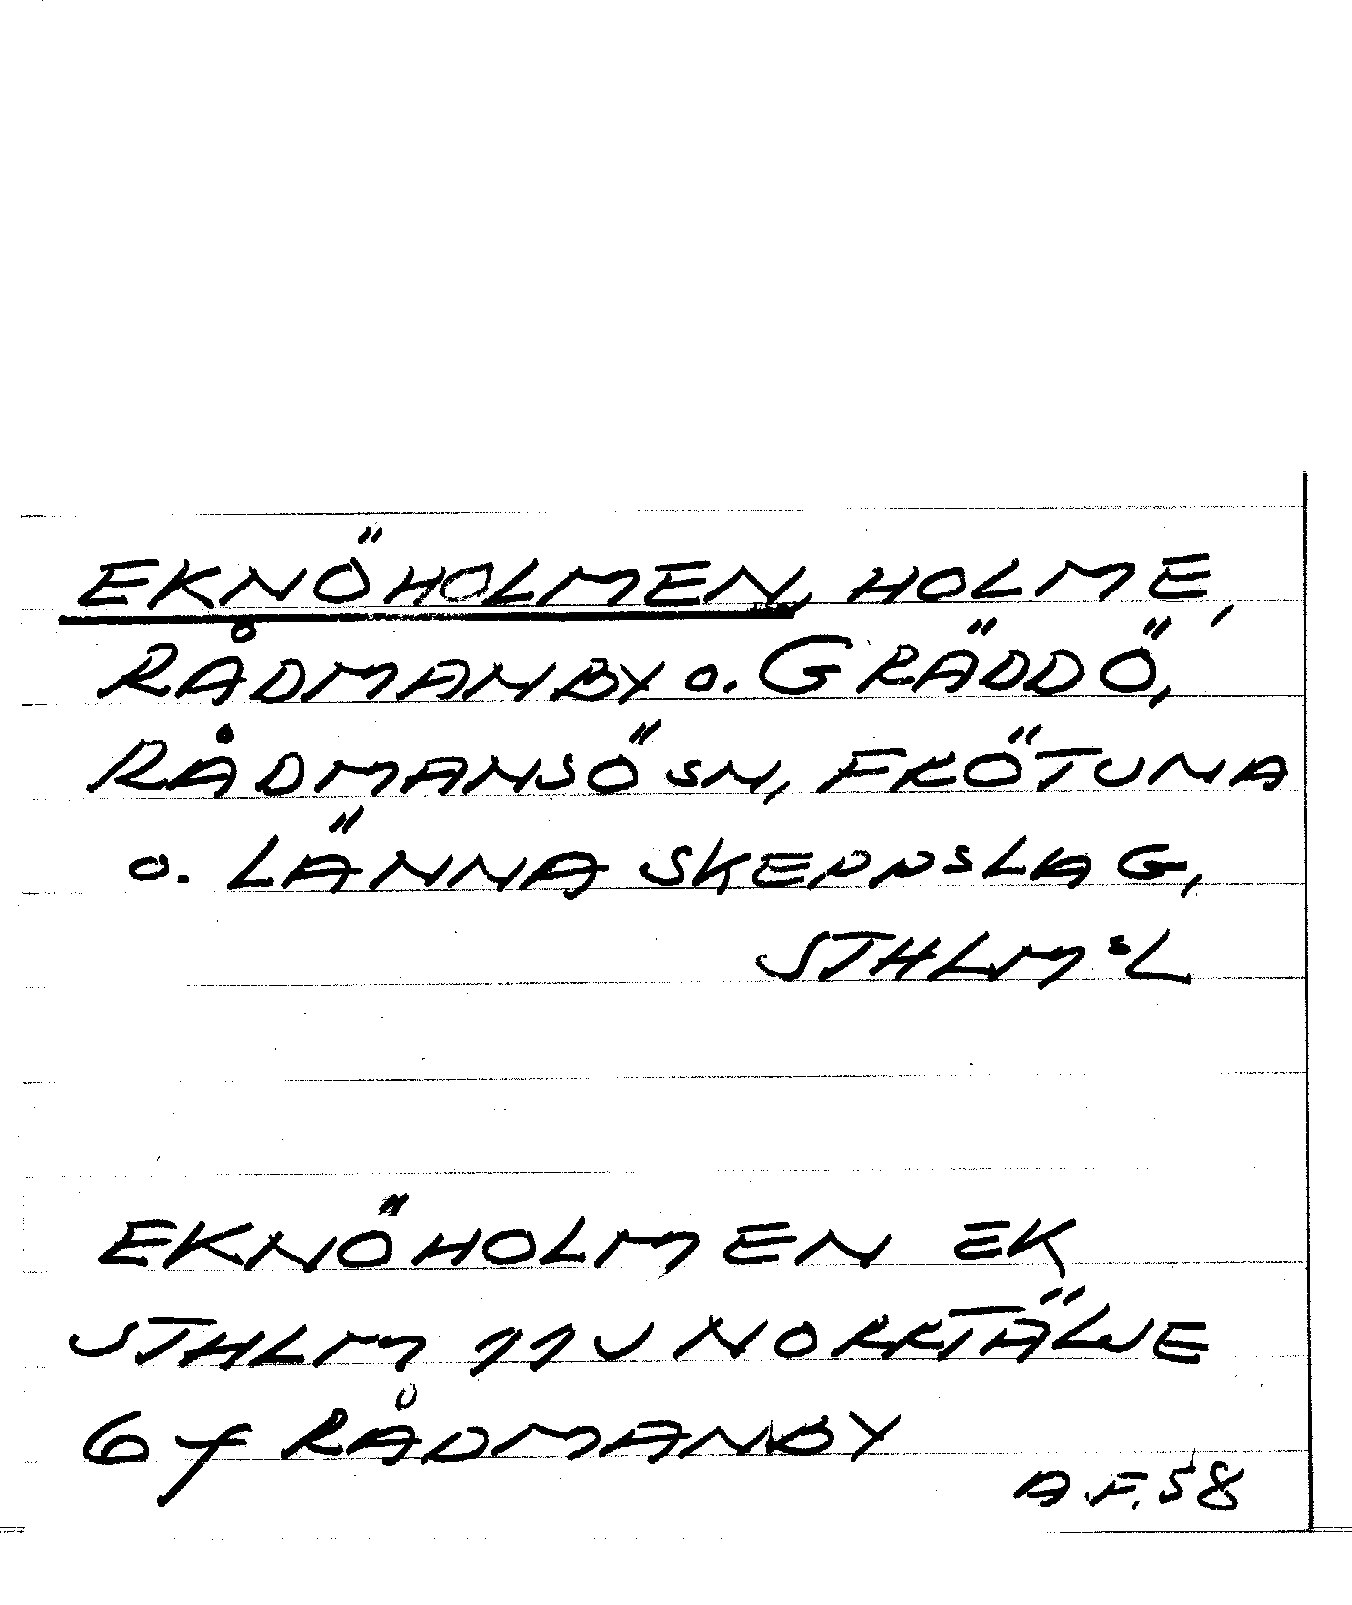 EKNÖHOLMEN, HOLME,
RÅDMANBY o. GRÄDDÖ,
RÅDMANSÖ SN, FRÖTUNA
o. LÄNNA SKEPPSLAG,
STHLM:S L
EKNÖHOLMEN EK
STHLM 11J NORRTÄLJE
6f RÅDMANBY
A.F. 58